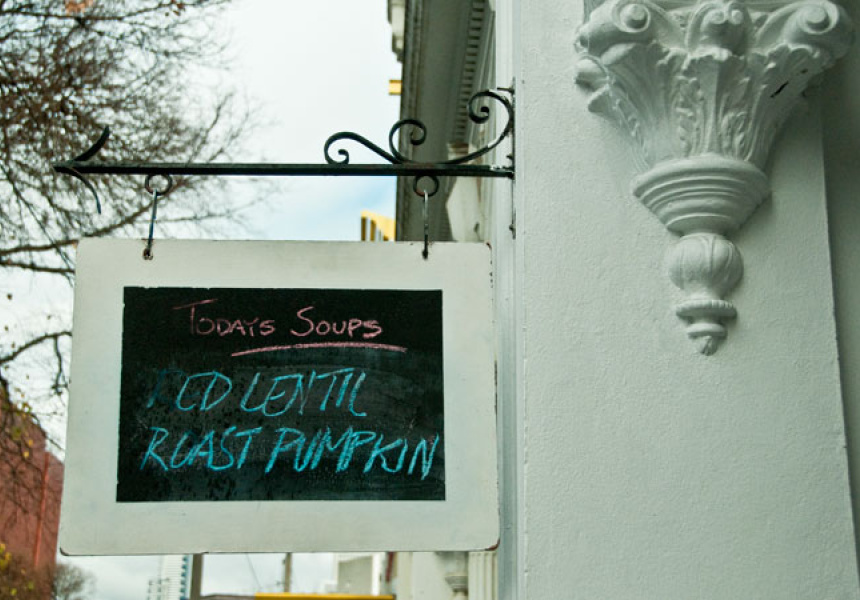 TODAYS SOUPS
RED LENTIL
ROAST PUMPKIN